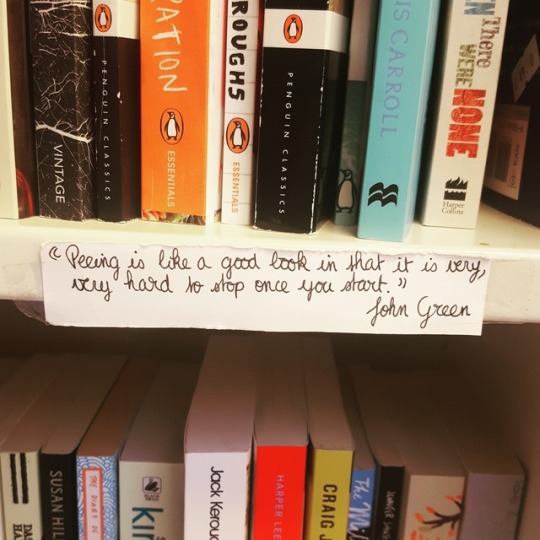 VINTAGE
PENGUIN CLASSICS
RATION
ESSENTIALS
ROUGHS
ESSENTIALS
PENGUIN CLASSICS
IS CARROLL
There
WERE
NONE
Harper
Collins
“ Peeing is like a good book in that it is very,
very hard to stop once you start. ”
John Green
SUSAN HIL
THE DIARY OF
Kin
Jack Keroua
HARPER LEE
CRAIG
The